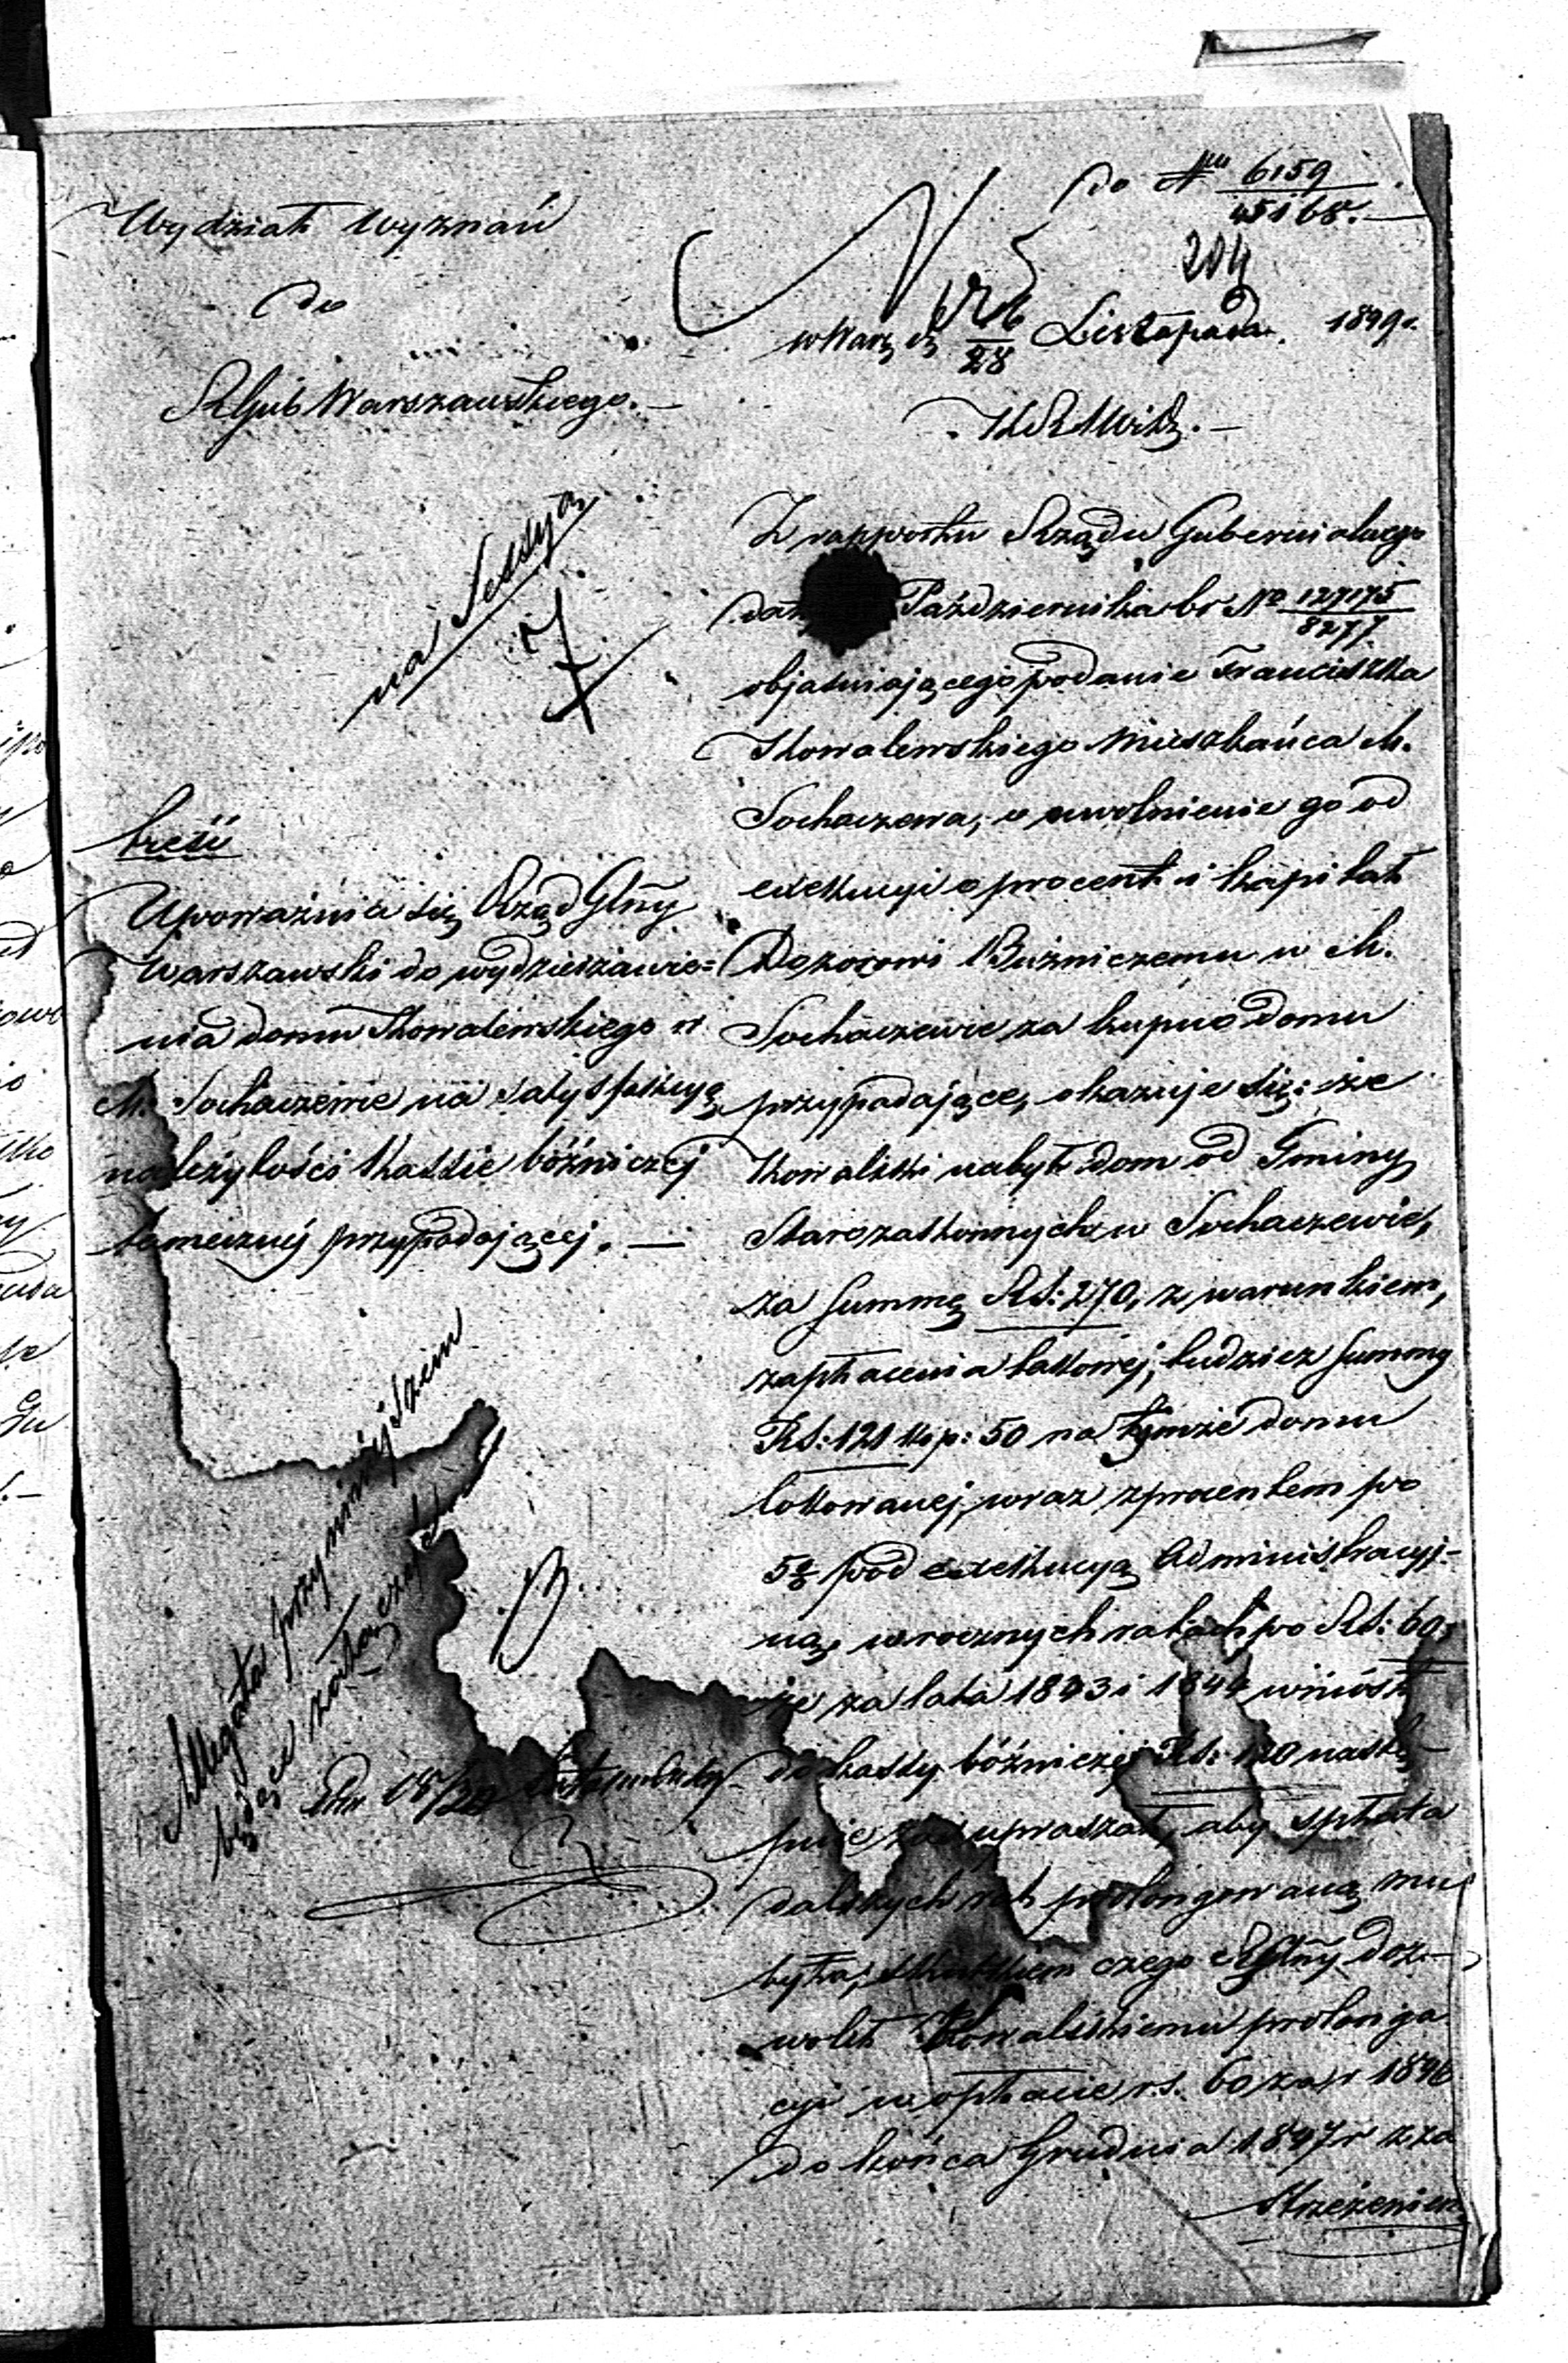 do Nru 6159
45168.
Wydział Wyznań
204
do
w Warz dz 16/28 Listopada. 1849 r.
RGub Warszawskiego.
K R S W i D.
na Sessyą
Z rapportu Rządu Gubernialnego
Października br No 127175
8277
objaśniającego podanie Franciszka
Kowalewskiego Mieszkańca M.
Sochaczewa, o uwolnienie go od
exekucyi o procent i kapitał
Dozorowi Bużniczemu w M.
Sochaczewie za kupno domu
przypadające, okazuje się: że
Kowalski nabył dom od Gminy
Starozakonnych w Sochaczewie,
za summę RS: 270, z warunkiem,
zapłacenia takowej, tudzież summy
RS: 121 kop: 50 na tymże domu
lokowanej, wraz z procentem po
5% pod exekucyą Administracyj-
ną, w rocznych ratach po RS: 60,
że za lata 1843 i 1844 wniósł
do kassy bóźniczej RS: 120 nastę-
pnie zaś upraszał, aby spłata
dalszych rat prolongowaną mu
była, skutkiem czego RGlny doz-
wolił Kowalskiemu prolonga
cyi w opłacie rs. 60 za r 1846
do końca Grudnia 1847 r z za
strzeżeniem
treść
Upoważnia się Rząd Glny
Warszawski do wydzierżawie=
nia domu Kowalewskiego w
M. Sochaczewie na satysfakcyą
należytości Kassie bóźniczej
tamecznej przypadającej.
Allegata przy niniejszem
będące
dnia 18/30